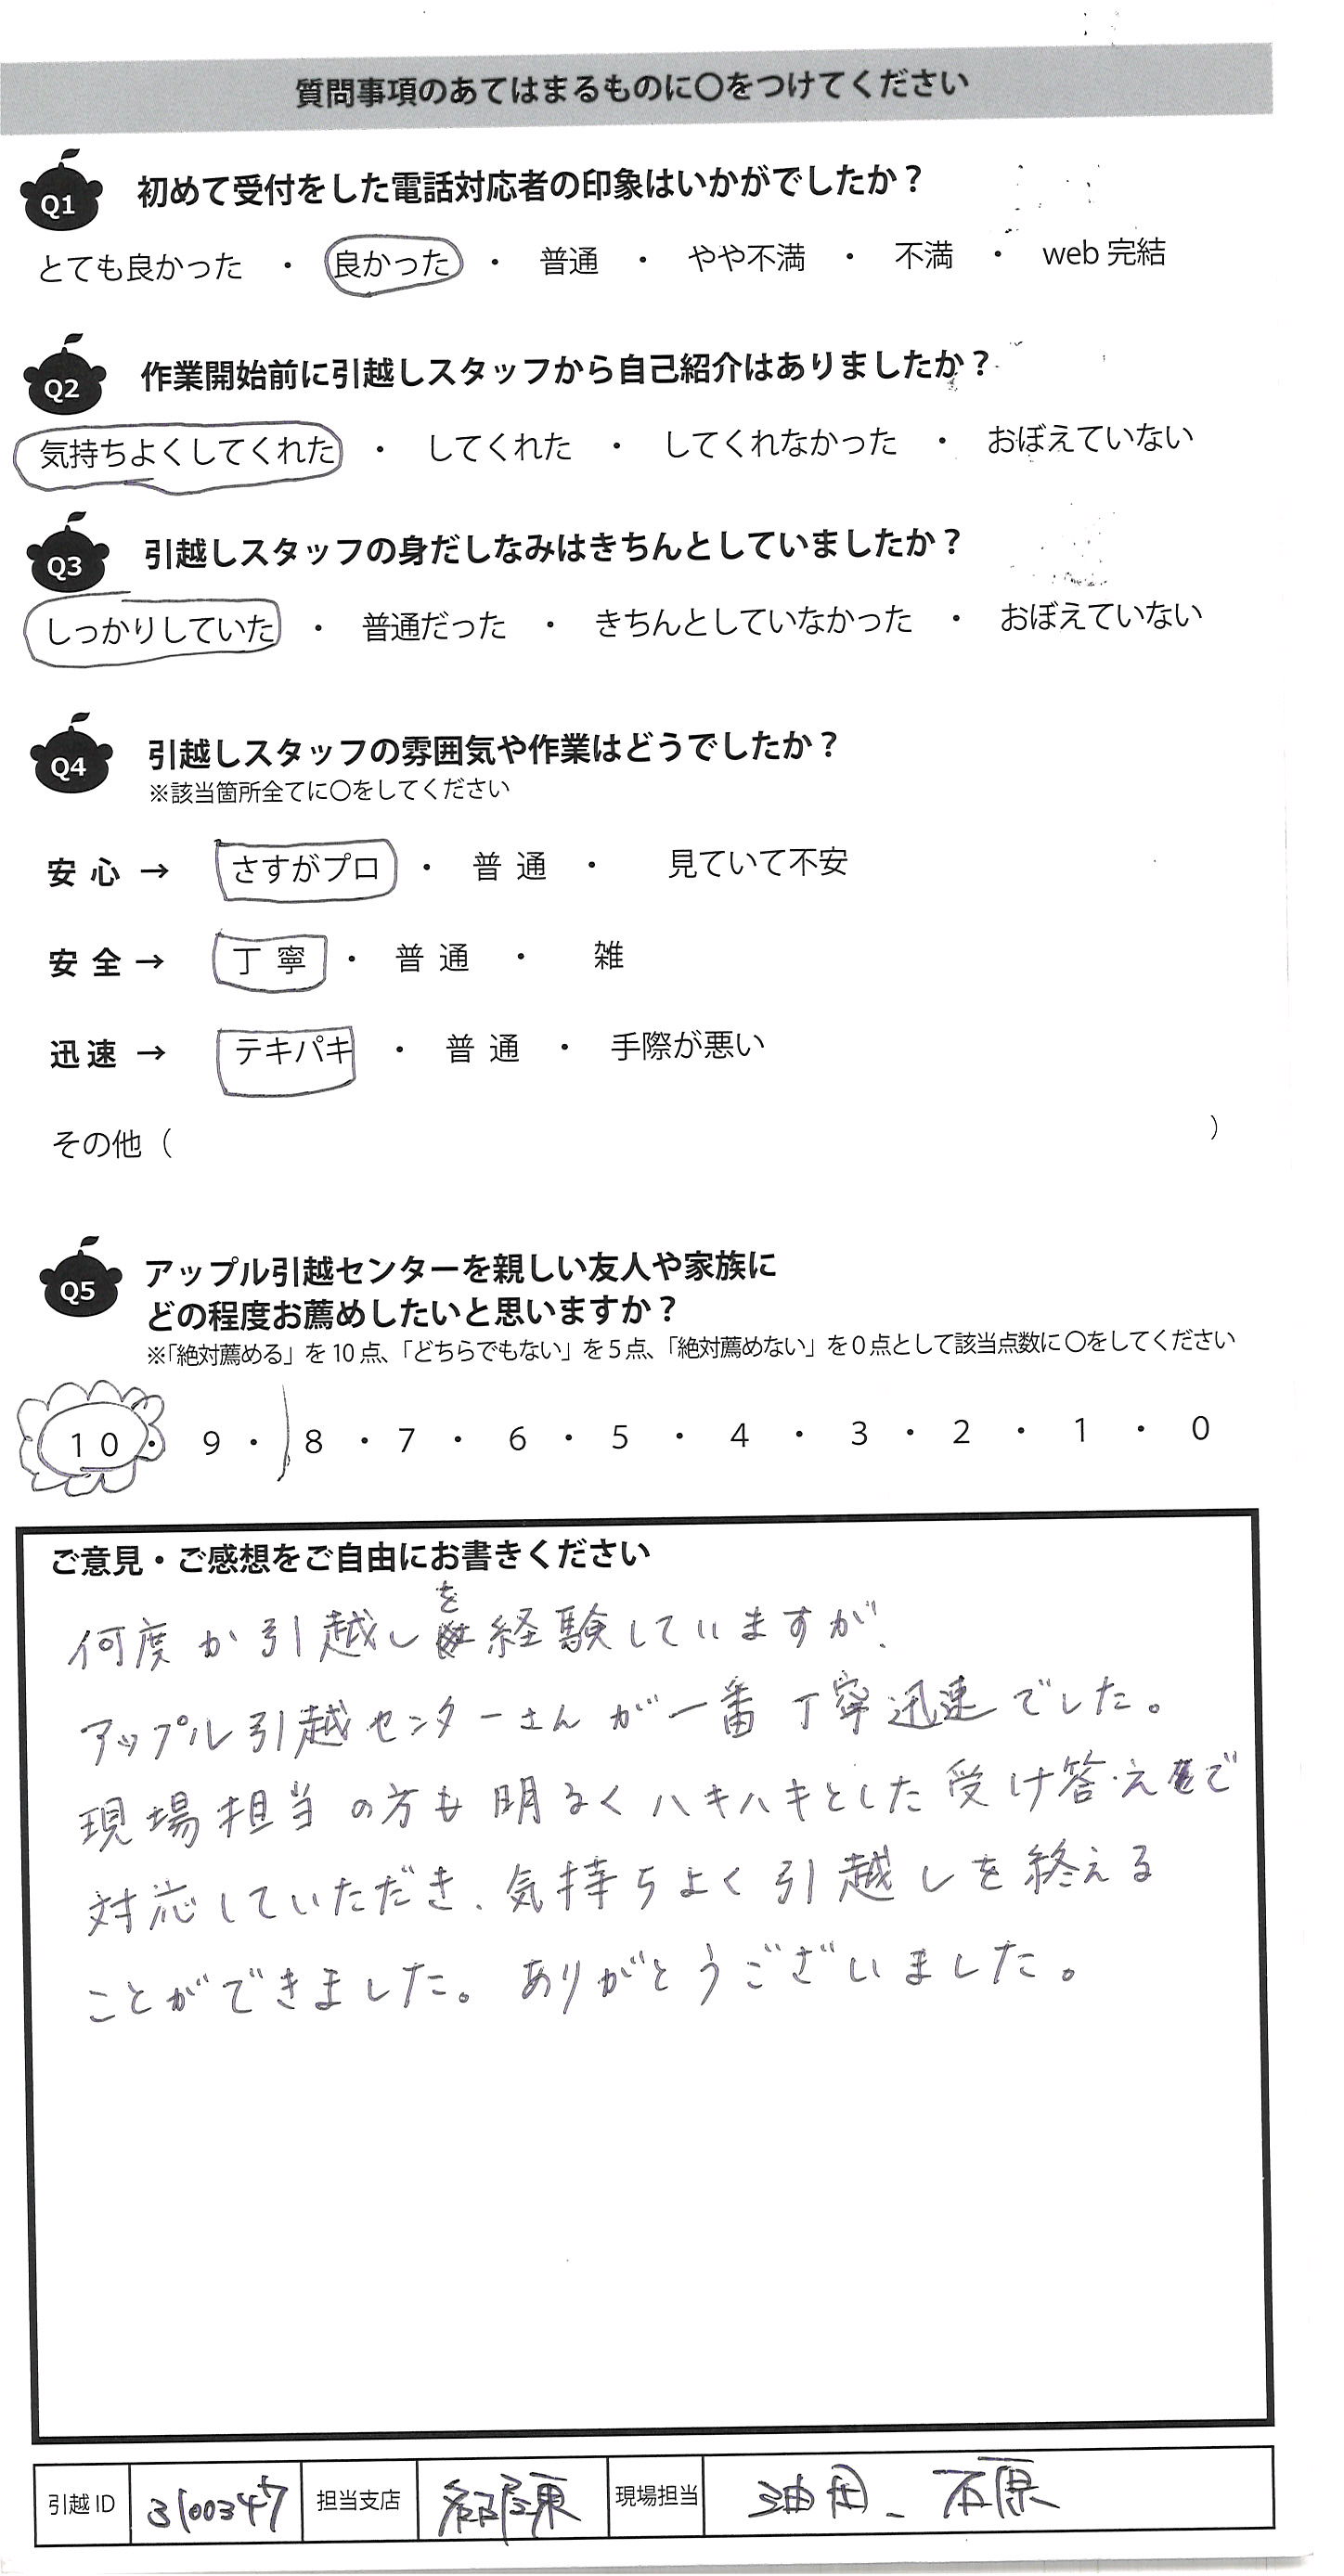 質問事項のあてはまるものに〇をつけてください
Q1 初めて受付をした電話対応者の印象はいかがでしたか？
とても良かった ・ 良かった ・ 普通 ・ やや不満 ・ 不満 ・ web 完結
Q2 作業開始前に引越しスタッフから自己紹介はありましたか？
気持ちよくしてくれた ・ してくれた ・ してくれなかった ・ おぼえていない
Q3 引越しスタッフの身だしなみはきちんとしていましたか？
しっかりしていた ・ 普通だった ・ きちんとしていなかった ・ おぼえていない
Q4 引越しスタッフの雰囲気や作業はどうでしたか？
※該当箇所全てに〇をしてください
安 心 → さすがプロ ・ 普 通 ・ 見ていて不安
安 全 → 丁 寧 ・ 普 通 ・ 雑
迅 速 → テキパキ ・ 普 通 ・ 手際が悪い
その他（ ）
Q5 アップル引越センターを親しい友人や家族に
どの程度お薦めしたいと思いますか？
※「絶対薦める」を 10 点、「どちらでもない」を 5 点、「絶対薦めない」を 0 点として該当点数に 〇をしてください
10 ・ 9 ・ 8 ・ 7 ・ 6 ・ 5 ・ 4 ・ 3 ・ 2 ・ 1 ・ 0
ご意見・ご感想をご自由にお書きください
何度か引越しを経験していますが、
アップル引越センターさんが一番丁寧迅速でした。
現場担当の方も明るくハキハキとした受け答えで
対応していただき、気持ちよく引越しを終える
ことができました。ありがとうございました。
引越 ID 3100347 担当支店 現場担当 油田、石原